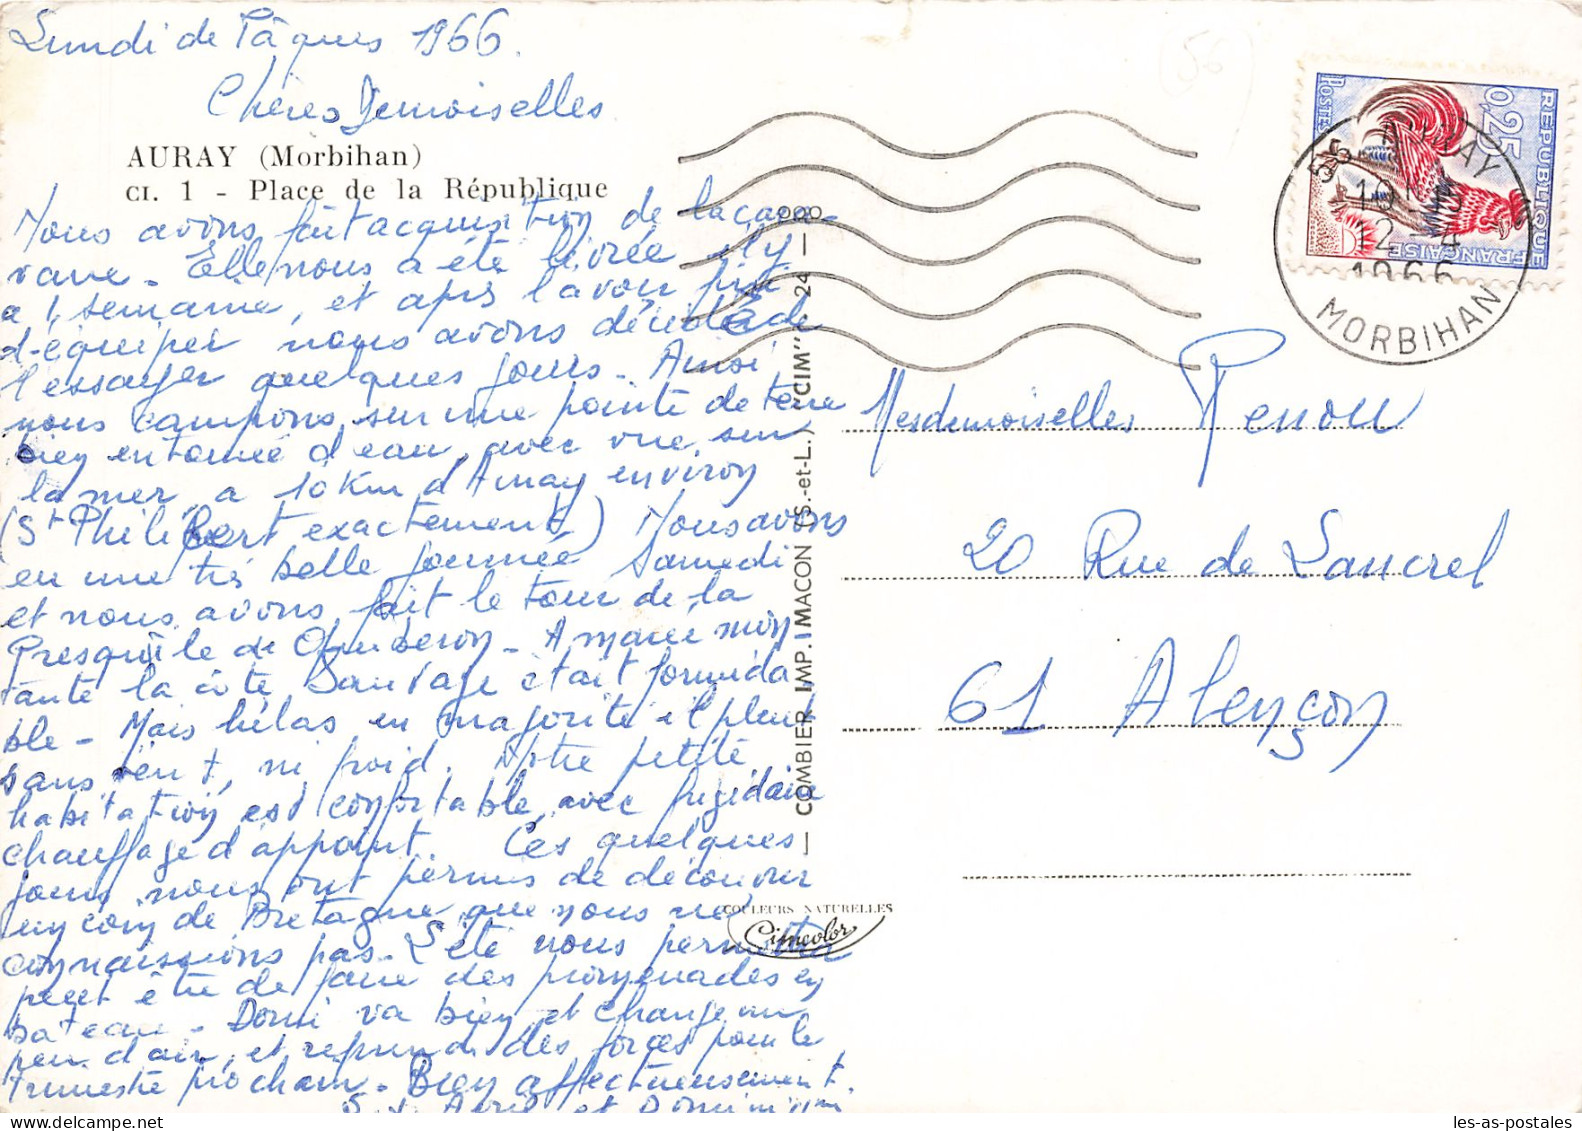 Lundi de Pâques 1966.
Chères Demoiselles
AURAY (Morbihan)
CI. 1 - Place de la République
Nous avons fait acquisition de la cara-
vane - Elle nous a été livrée il y
a 1 semaine, et après l'avoir fait
d'équiper nous avons décidé de
l'essayer quelques jours - Ainsi
nous campons sur une pointe de terre
bien entourée d'eau, avec vue sur
la mer, à 10 Km d'Auray environ
(St Philibert exactement) Nous avons
eu une très belle journée Samedi
et nous avons fait le tour de la
Presqu'île de Quiberon - A marée mon
tante la côte Sauvage était formida
ble - Mais hélas en majorité il pleut
sans vent, ni froid. Notre petite
habitation est confortable avec frigidaire
chauffage d'appoint. Ces quelques
jours nous ont permis de découvrir
un coin de Bretagne que nous ne
connaissions pas - L'été nous permettra
peut être de faire des promenades en
bateau - Domi va bien, et change un
peu d'air, et reprend des forces pour le
trimestre prochain - Bien affectueusement.
et
COMBIER IMP. MACON (S.-et-L.) "CIM" 24 -
COULEURS NATURELLES
Cimcolor
56
RÉPUBLIQUE FRANÇAISE
0,25
POSTES
56 AURAY
12 - 4
1966
MORBIHAN
Mesdemoiselles Renou
20 Rue de Lancrel
61 Alençon
les-as-postales